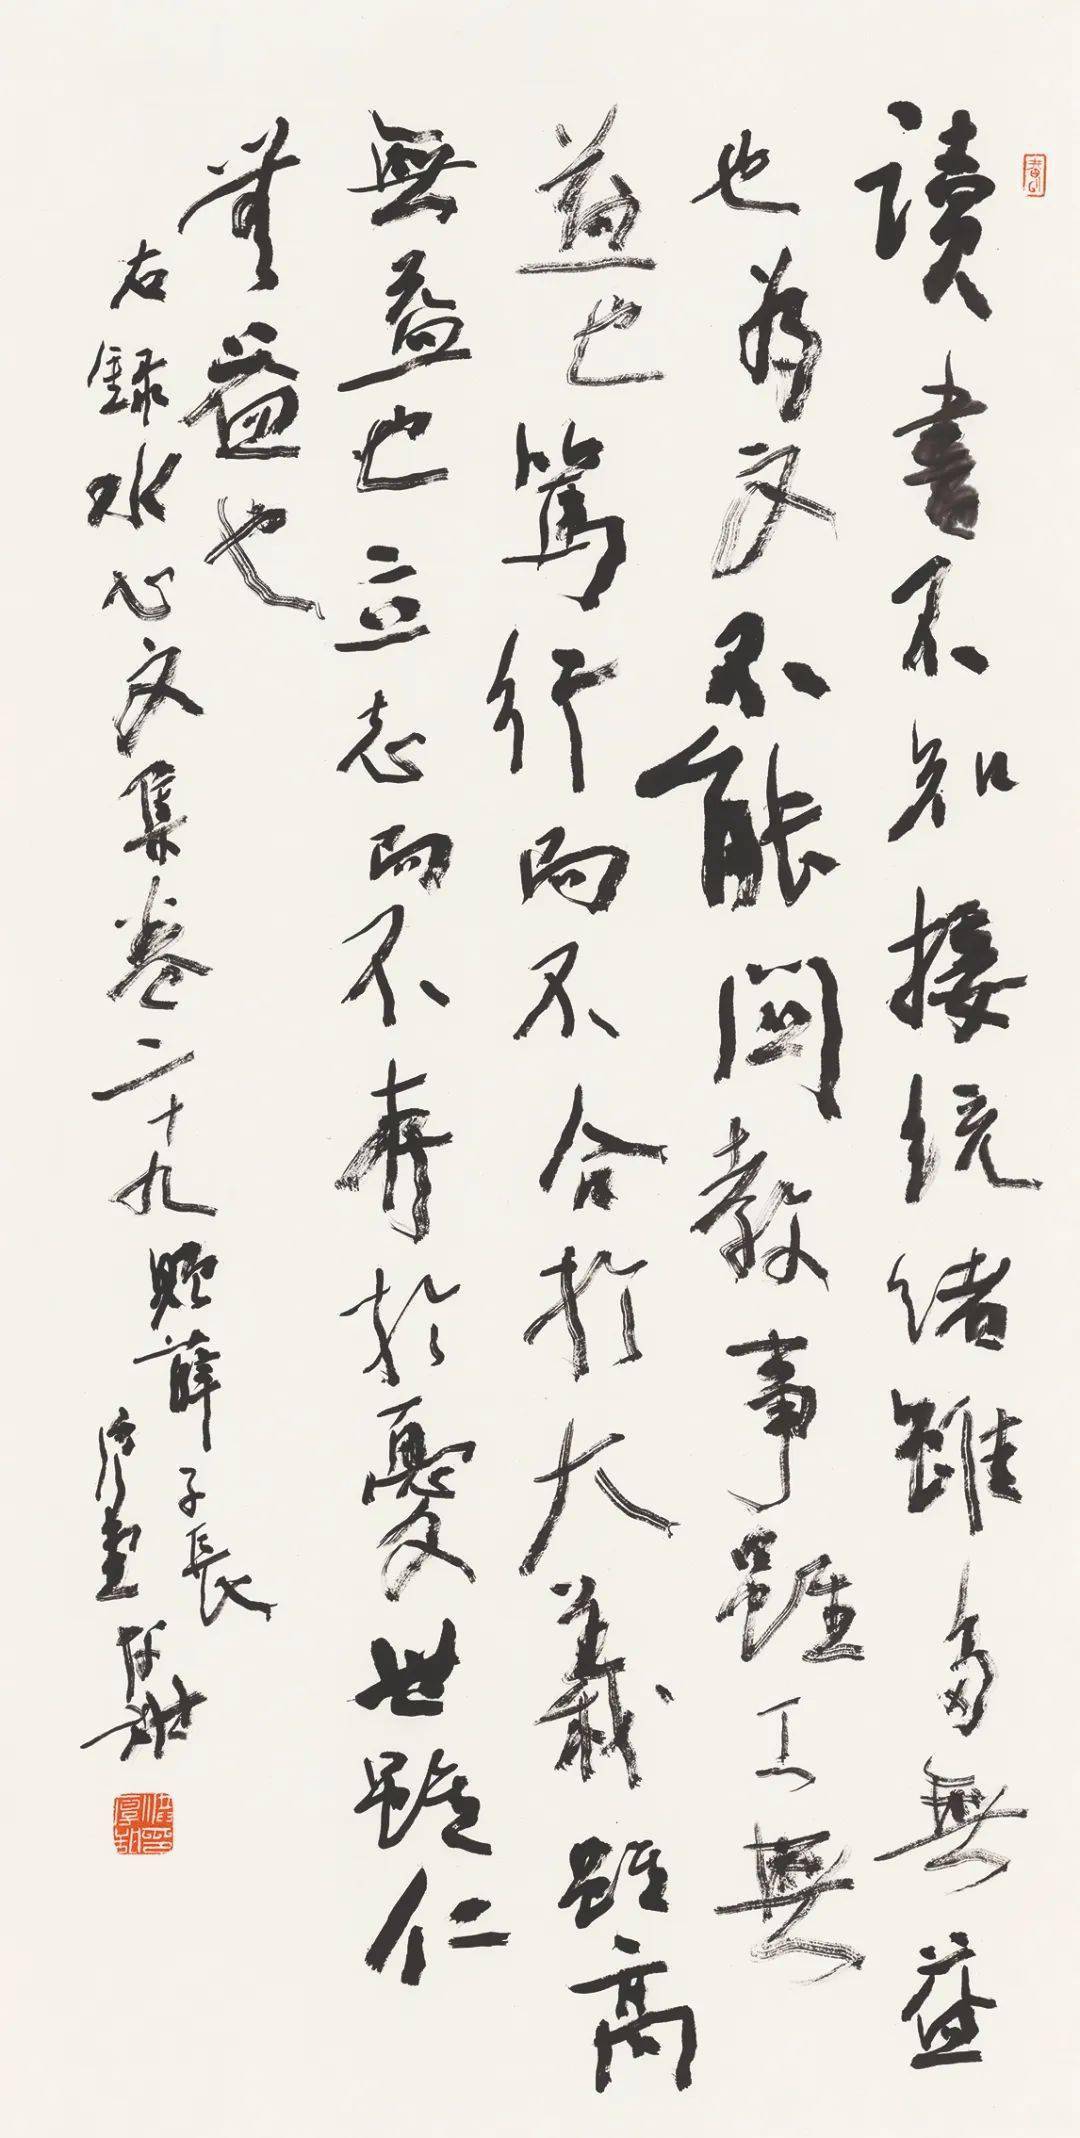 讀書不知接統緒雖多無益
也為文不能関教事雖工無
益也篤行而不合於大義雖高
無益也立志而不存於憂世雖仁
無益也
右録水心文集卷二十九贈薛子長